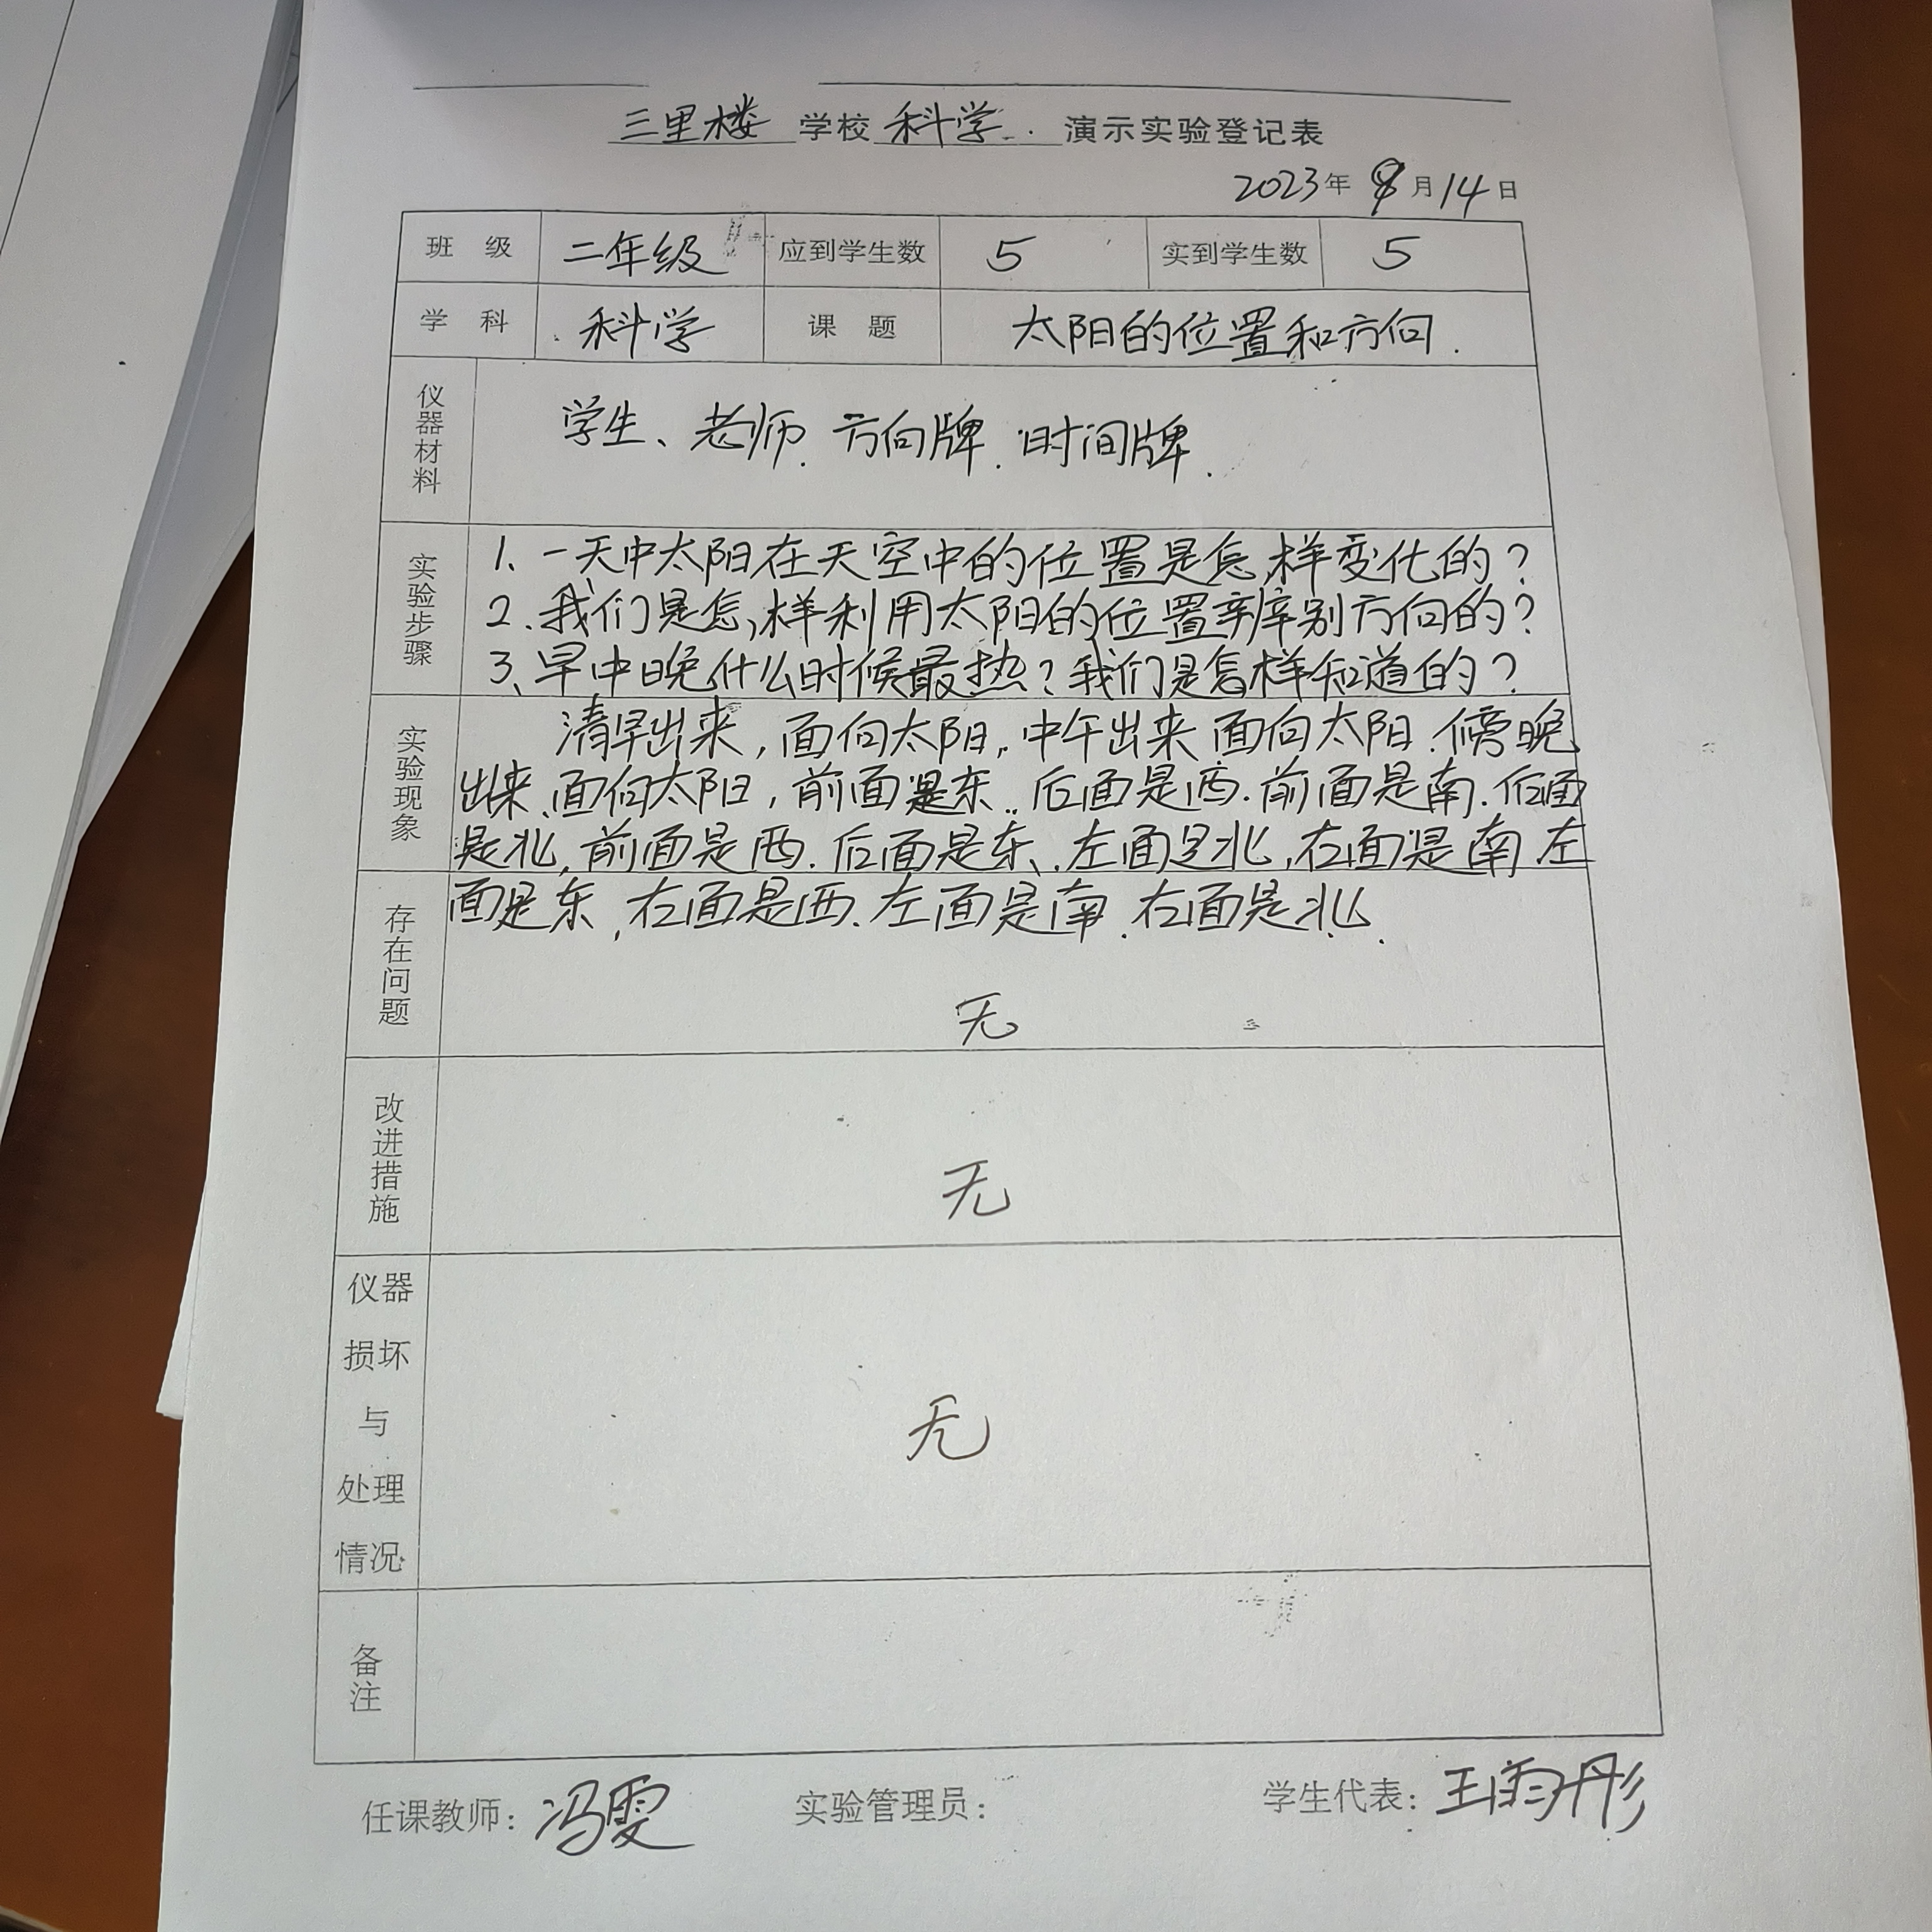 三里楼 学校 科学 演示实验登记表
2023年 9月14日
班 级 二年级 应到学生数 5 实到学生数 5
学 科 科学 课 题 太阳的位置和方向.
仪器材料 学生、老师.方向牌.时间牌.
实验步骤
1、一天中太阳在天空中的位置是怎样变化的?
2、我们是怎样利用太阳的位置辨别方向的?
3、早中晚什么时候最热?我们是怎样知道的?
实验现象
清早出来,面向太阳,中午出来面向太阳.傍晚
出来、面向太阳,前面是东..后面是西.前面是南.后面
是北,前面是西.后面是东、左面是北,右面是南左
面是东,右面是西.左面是南.右面是北.
存在问题 无
改进措施 无
仪器
损坏
与
处理
情况
无
备注
任课教师:冯雯 实验管理员: 学生代表:王雨彤